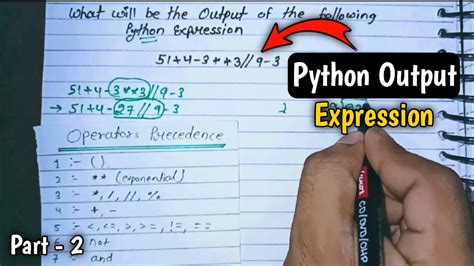 What will be the Output of the following
Python Expression
51+4-3**3//9-3
51+4-3**3//9-3
→ 51+4-27//9-3
2
Python Output
Expression
Operators Precedence
1 :- ()
2 :- ** (exponential)
3 :- *, /, //, %
4 :- +, -
5 :- <, <=, >, >=, !=, ==
not
7 :- and
Part - 2